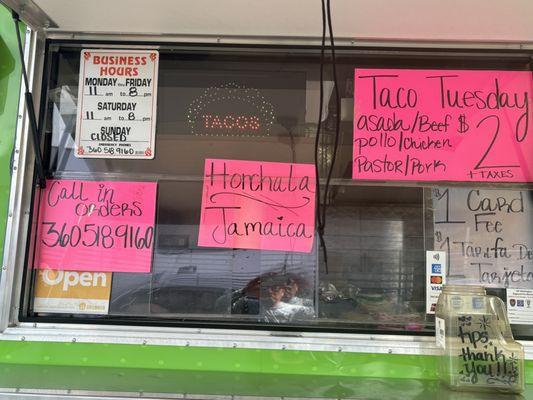 BUSINESS
HOURS
MONDAY to FRIDAY
11 am to 8 pm
SATURDAY
11 am to 8 pm
SUNDAY
CLOSED
EMERGENCY PHONE
360 518 9160
TACOS
Taco Tuesday
asada/Beef
pollo/Chicken
Pastor/Pork
$2
+TAXES
Call in
orders
3605189160
Horchata
Jamaica
Open
$1 Card
Fee
$1 Tarifa De
Tarjeta
VISA
tips,
thank
you!!